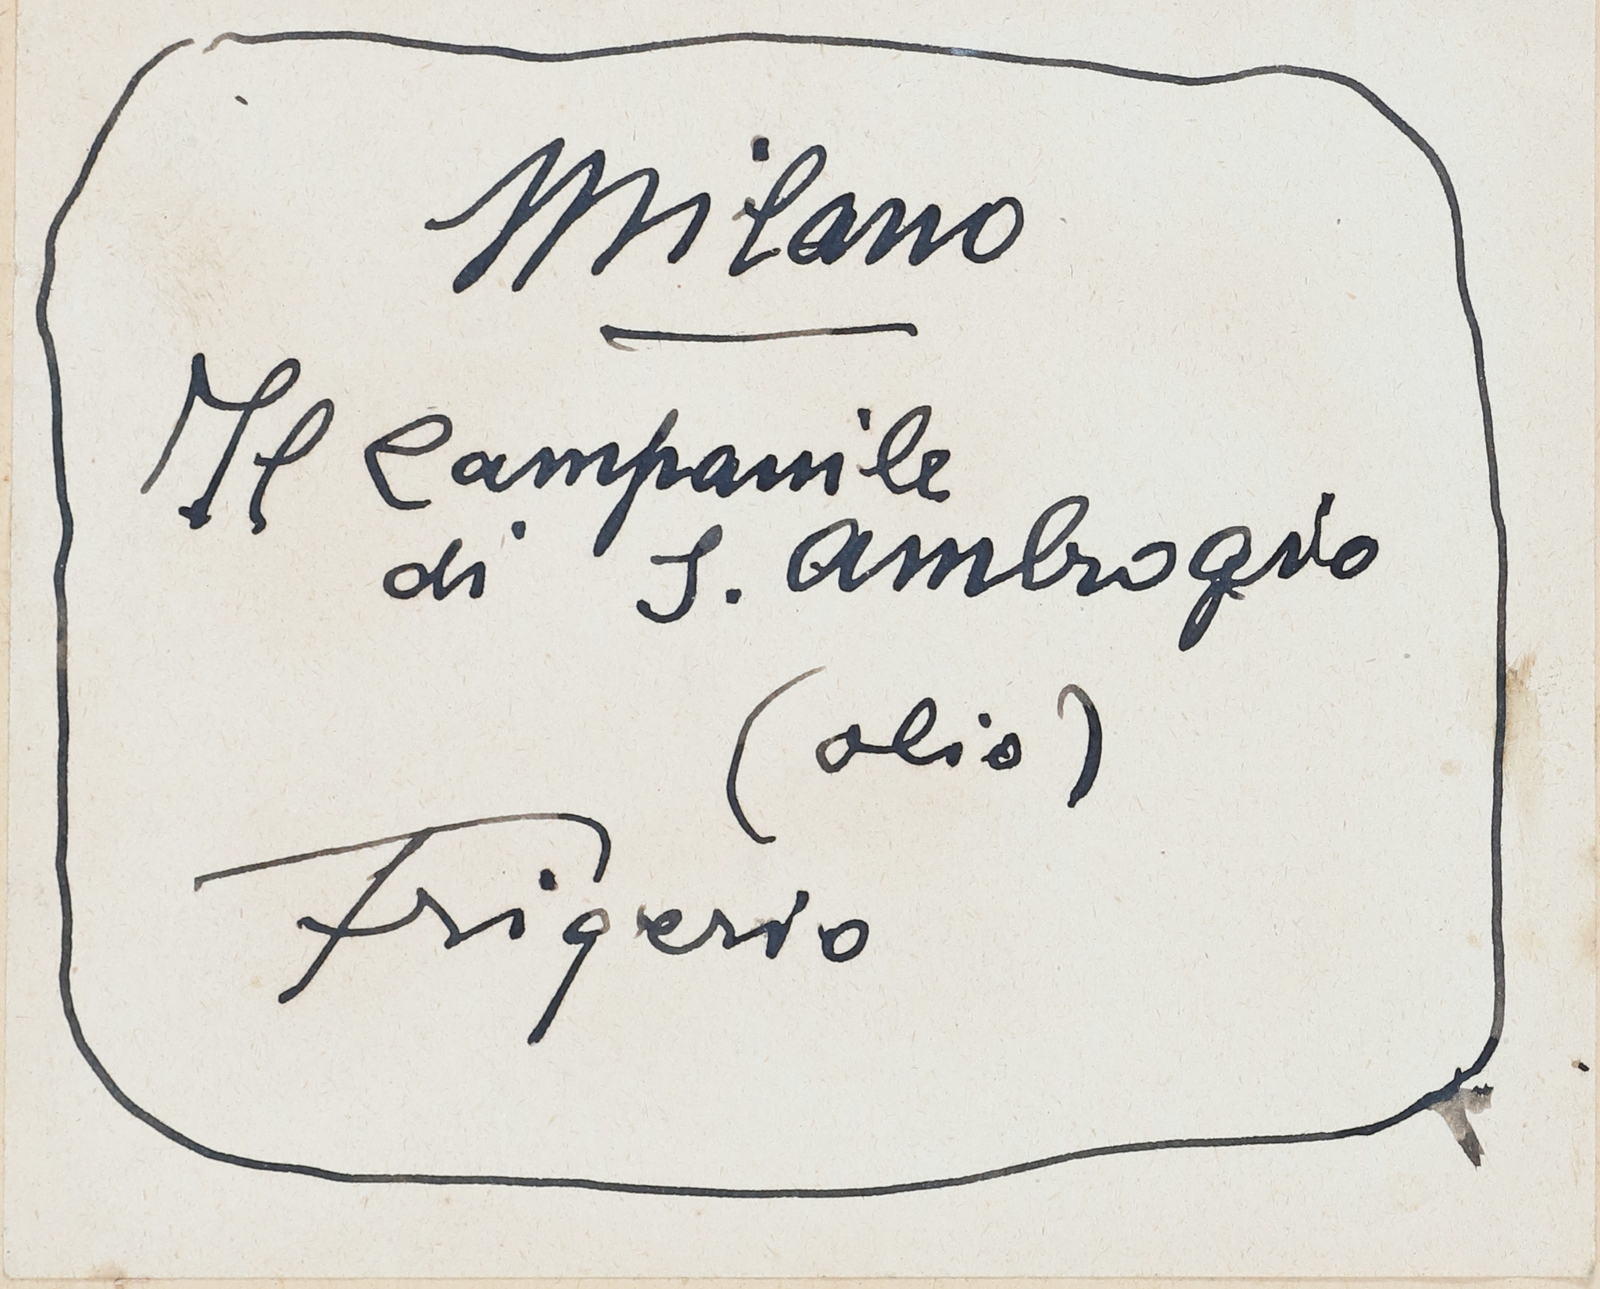 Milano
Il Campanile
di S. Ambrogio
(olio)
Frigerio